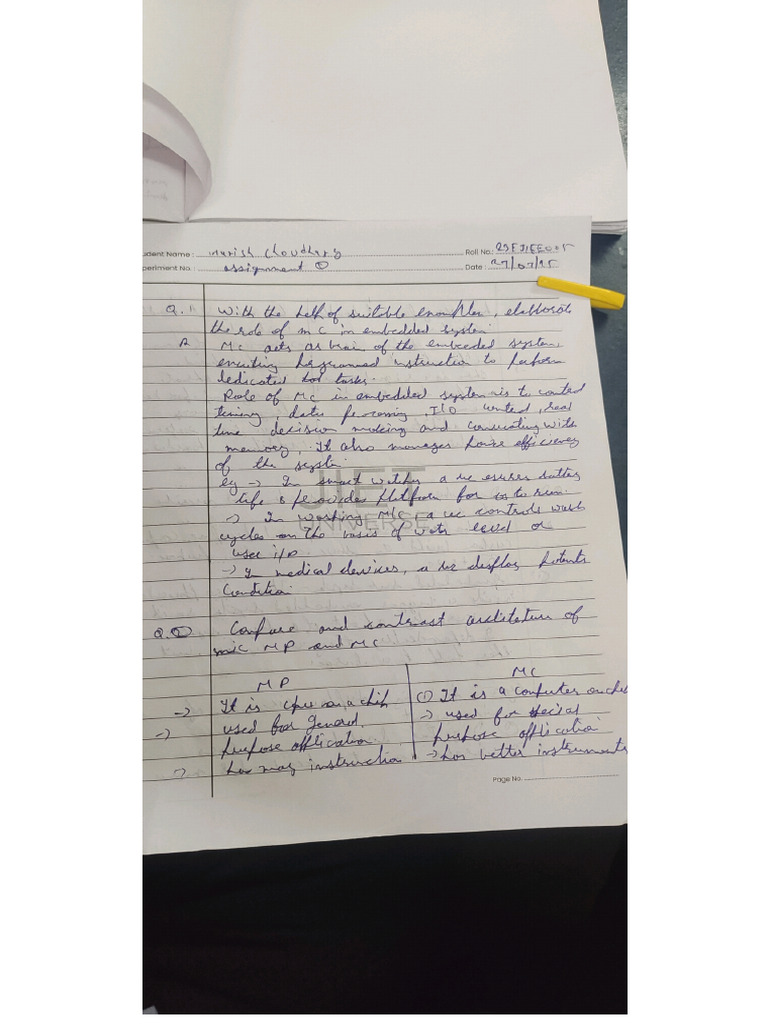 udent Name : Choudhary Roll No.:
periment No. : assignment ① Date : 27/07/25
Q.1 With the help of suitable examples, elaborate
the role of MC in embedded system
A MC acts as brain of the embedded system,
executing programmed instruction to perform
dedicated tasks.
Role of MC in embedded system is to control
timing, data processing, I/O control, real
time decision making and communicating with
memory. It also manages power efficiency
of the system
eg → In smart watches a uc ensures battery
life & provides platform for os to run
→ In washing M/C, a uc controls wash
cycles on the basis of water level or
user i/p
→ In medical devices, a uc display patients
Condition
JIET
UNIVERSE
Q.② Compare and contrast architecture of
MP and MC
MP
→ It is cpu on a chip
→ used for general
purpose application
→ has many instruction
MC
(1) It is a computer on chip
→ used for special
purpose application
→ has better instruments
Page No.